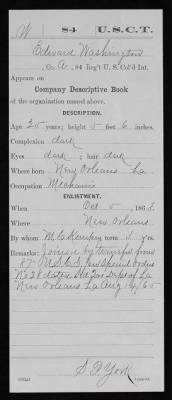 W 84 U.S.C.T.
Edward Washington
, Co. A, 84 Reg't U. S. Col'd Inf.
Appears on
Company Descriptive Book
of the organization named above.
DESCRIPTION.
Age 25 years; height 5 feet 6 inches.
Complexion dark
Eyes dark; hair dark
Where born New Orleans La
Occupation Mechanic
ENLISTMENT.
When Oct 5, 1863.
Where New Orleans
By whom term 3 y'rs.
Remarks: Joined by transfer from
87" U.S.C.I. per Special Orders
No 28 dated Hd Qrs Dept of La
New Orleans La Aug 16/65
S. D. York